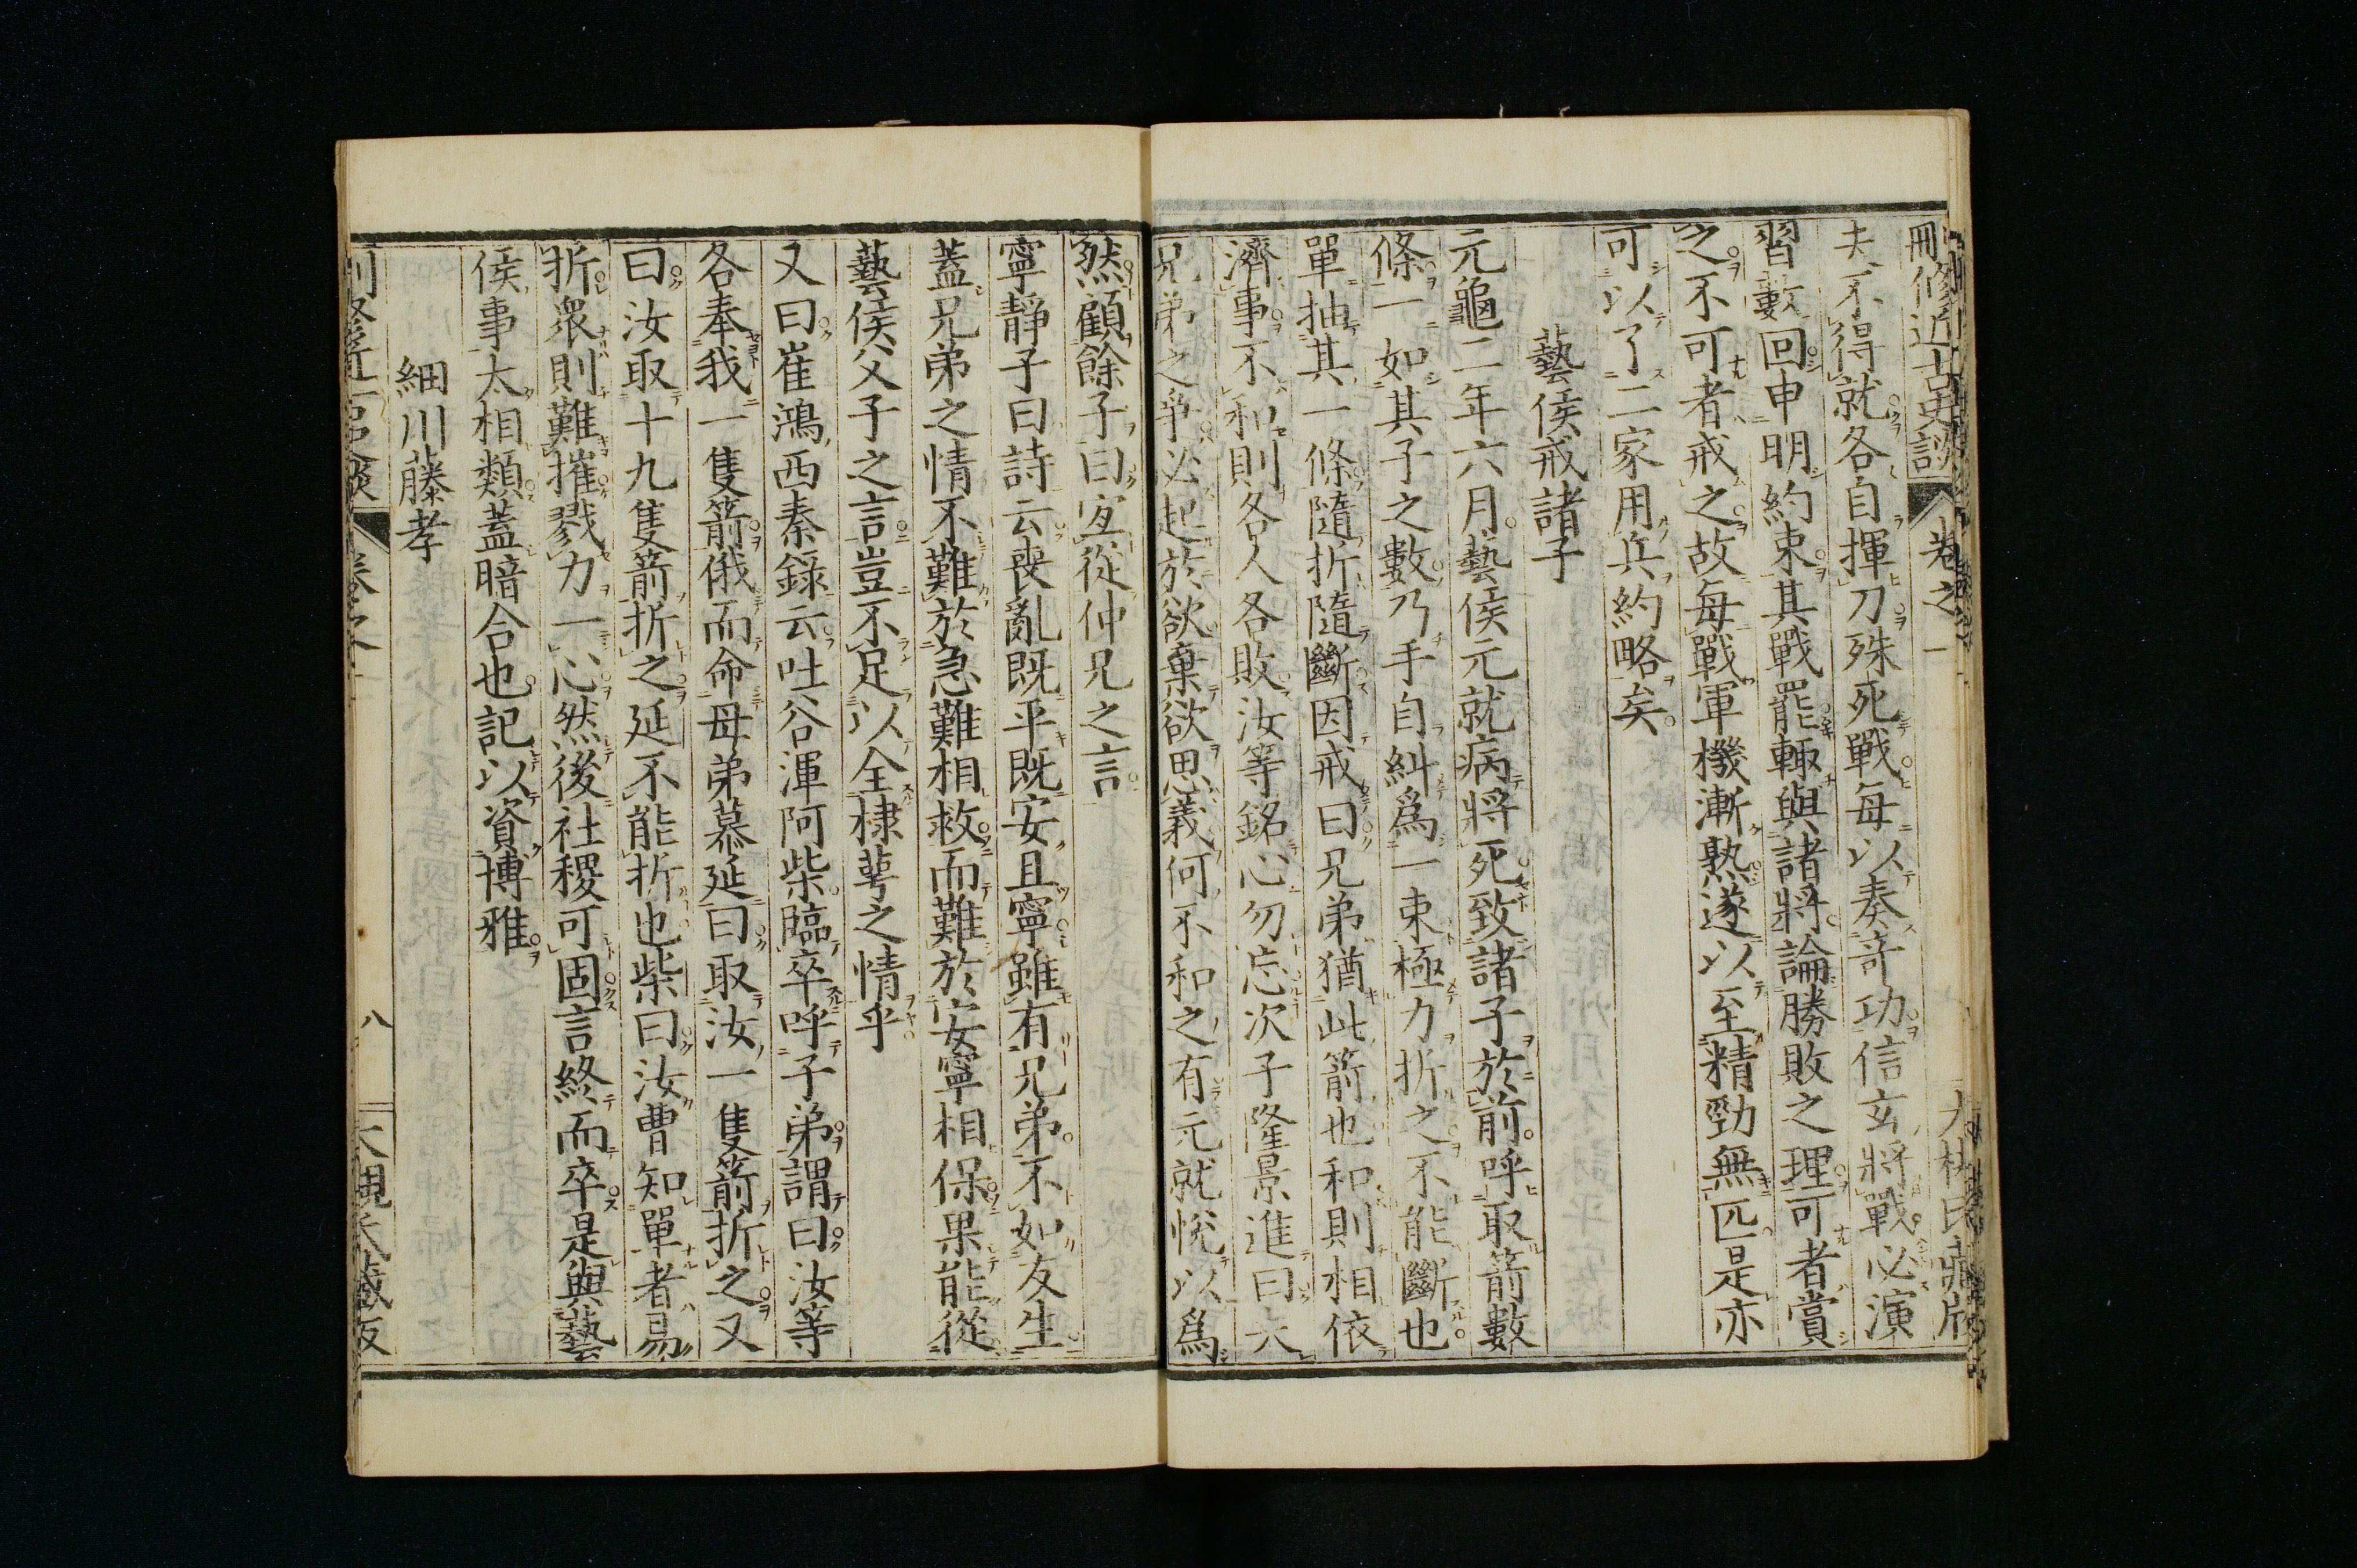 刪修近古史談 卷之一
夫不得就各自揮刀殊死戰每以奏奇功信玄將戰必演
習數回申明約束其戰罷輙與諸將論勝敗之理可者賞
之不可者戒之故每戰軍機漸熟遂以至精勁無匹是亦
可以了二家用兵約略矣
藝侯戒諸子
元龜二年六月藝侯元就病將死致諸子於前呼取箭數
條一如其子之數乃手自糾爲一束極力折之不能斷也
單抽其一條隨折隨斷因戒曰兄弟猶此箭也和則相依
濟事不和則各人各敗汝等銘心勿忘次子隆景進曰夫
兄弟之爭必起於欲棄欲思義何不和之有元就悅以爲
然顧餘子曰宜從仲兄之言
寧靜子曰詩云喪亂既平既安且寧雖有兄弟不如友生
蓋兄弟之情不難於急難相救而難於安寧相保果能從
藝侯父子之言豈不足以全棣萼之情乎
又曰崔鴻西秦錄云吐谷渾阿柴臨卒呼子弟謂曰汝等
各奉我一隻箭俄而命母弟慕延曰取汝一隻箭折之又
曰汝取十九隻箭折之延不能折也柴曰汝曹知單者易
折衆則難摧戮力一心然後社稷可固言終而卒是與藝
侯事太相類蓋暗合也記以資博雅
細川藤孝
八